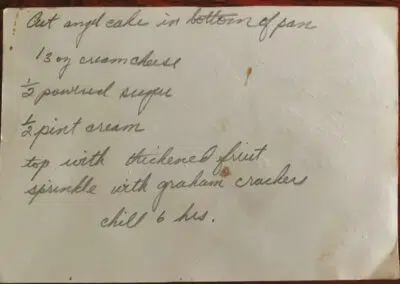 Cut angel cake in bottom of pan
1 3 oz cream cheese
1/2 powered sugar
1/2 pint cream
top with thickened fruit
sprinkle with graham crackers
chill 6 hrs.